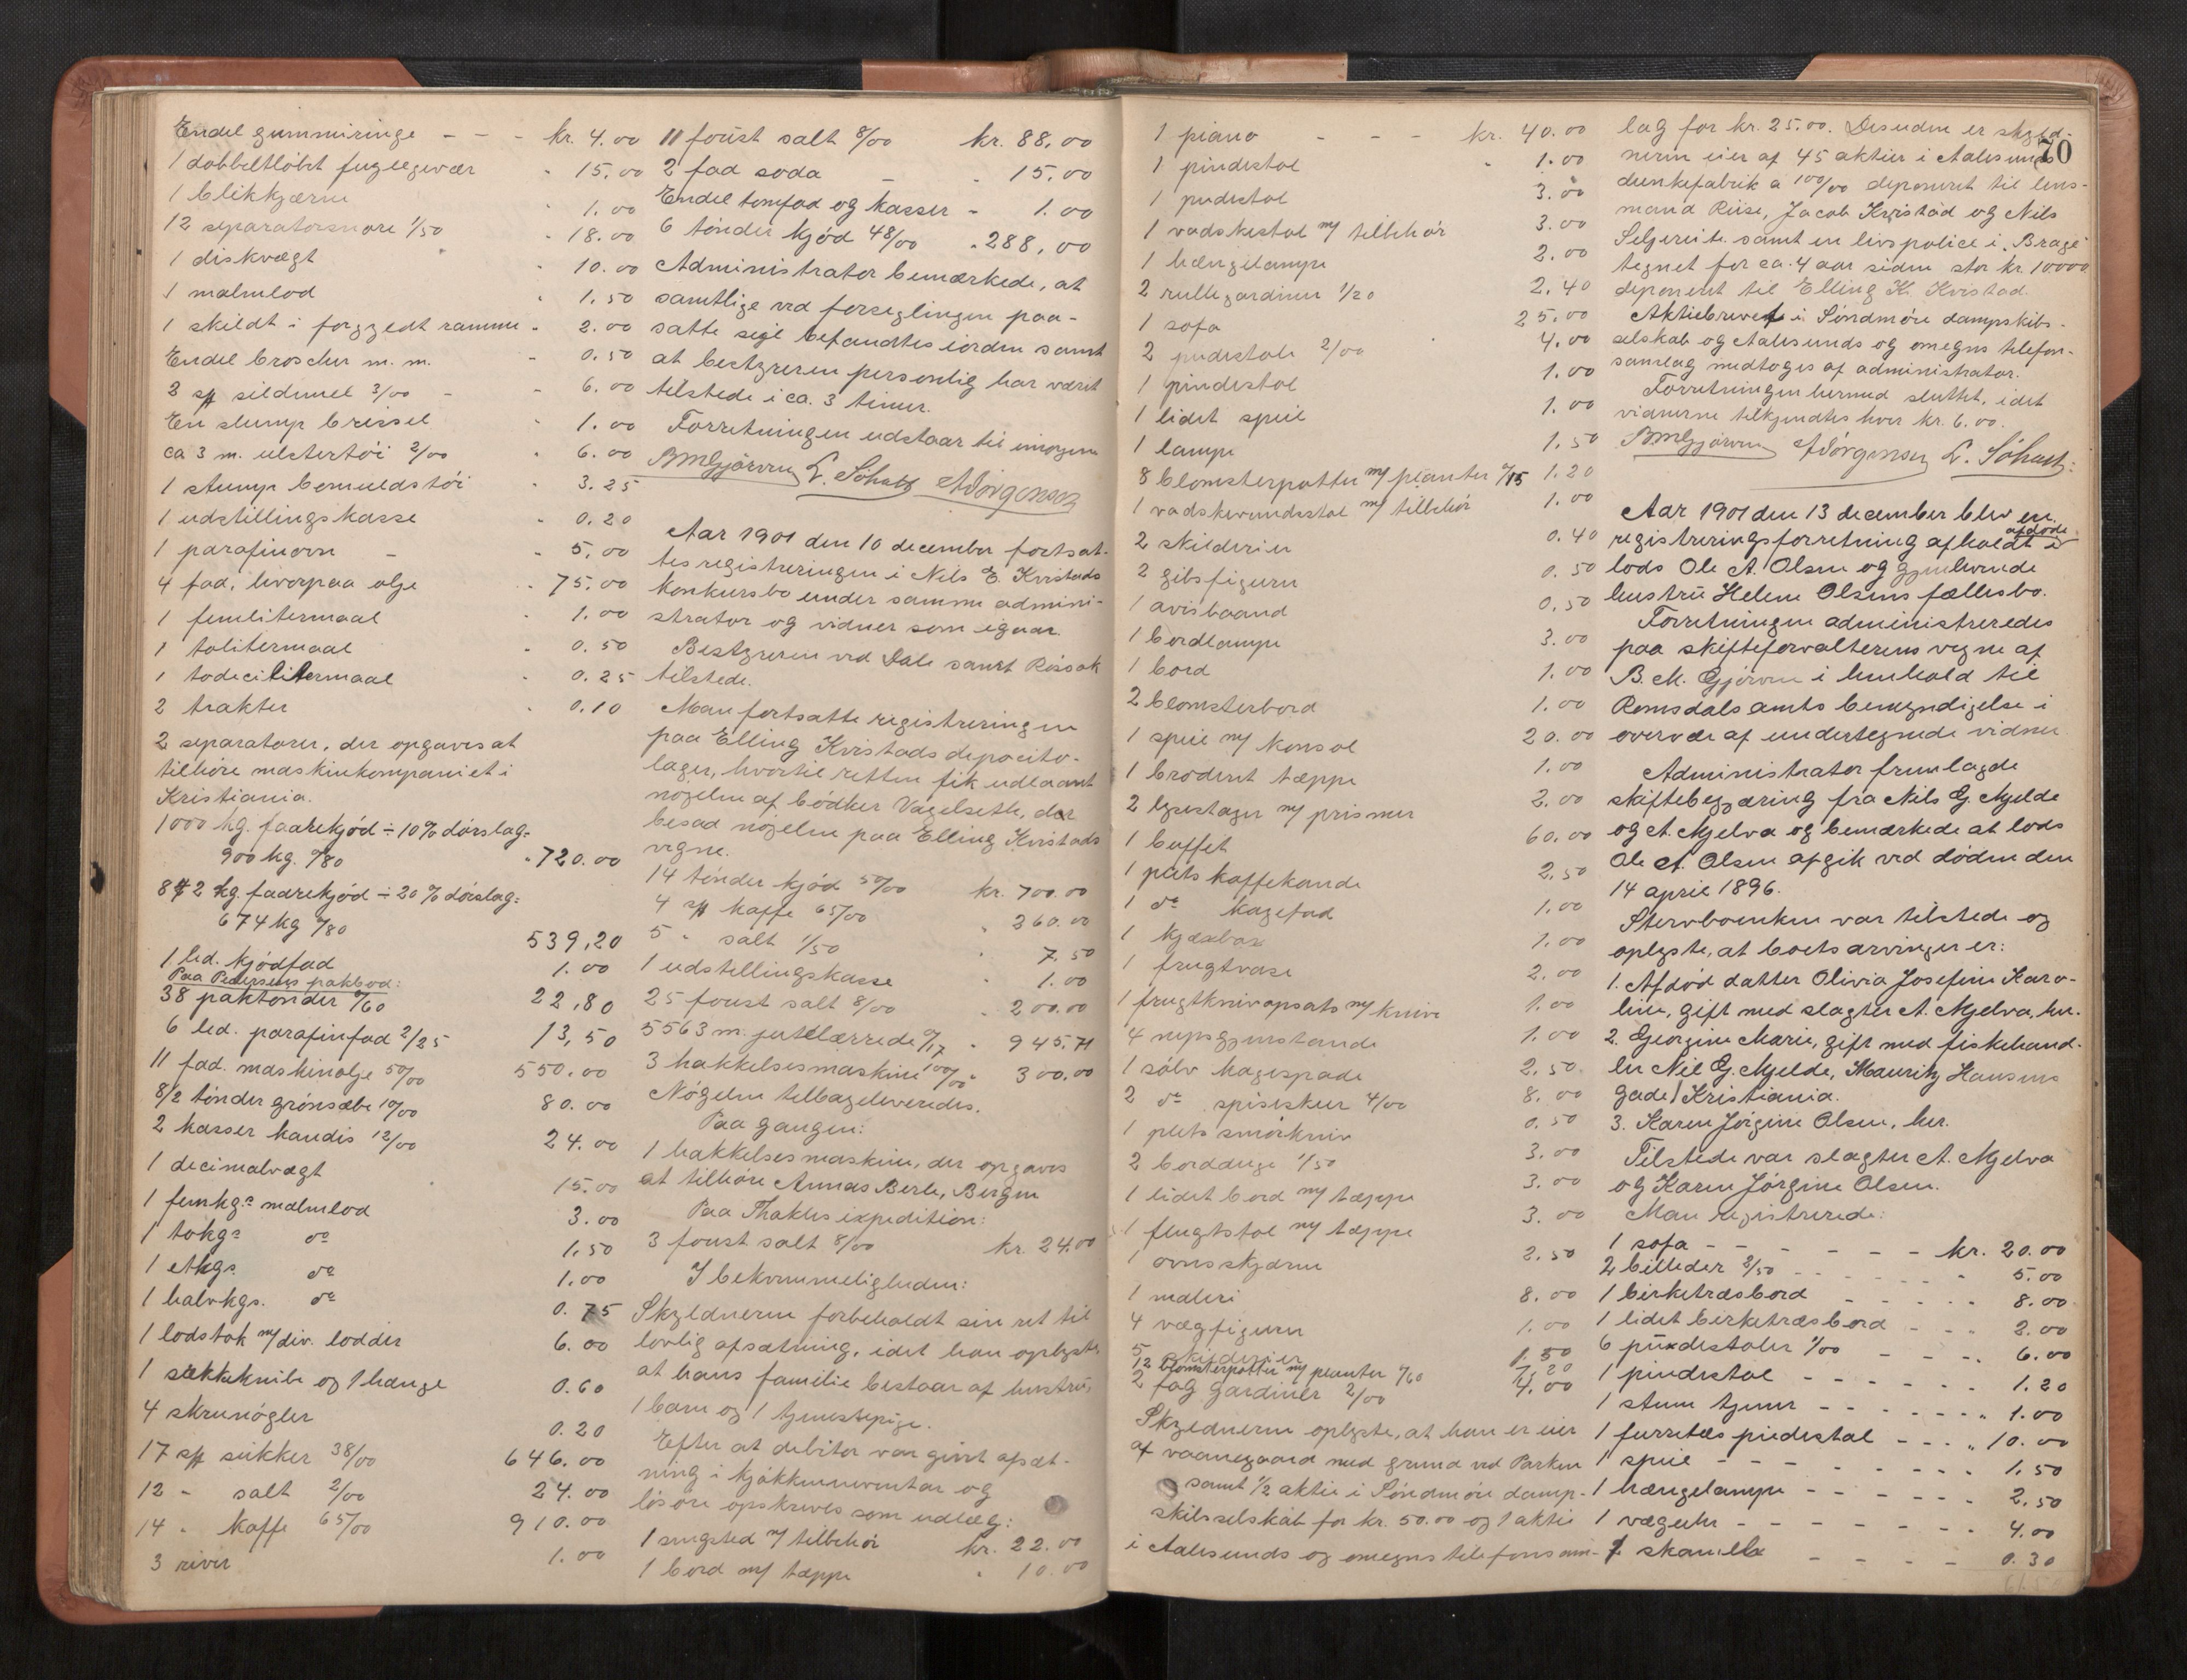 Endel gummiringe - - - kr. 4.00
1 dobbeltløbet fuglegevær " 15.00
1 blikkjærne " 1.00
12 separatorsnore 1/50 " 18.00
1 diskvægt " 10.00
1 malmlod " 1.50
1 skildt i forgyldt ramme " 2.00
Endel broscher m. m. " 0.50
2 sk sildemel 3/00 - " 6.00
En slump brissel " 1.00
ca 3 m. ulstertøi 2/00 " 6.00
1 stump bomuldstøi " 3.25
1 udstillingskasse " 0.20
1 parafinovn - " 5.00
4 fad, liverpaa olje " 75.00
1 femlitermaal " 1.00
1 tolitermaal " 0.50
1 todecilitermaal " 0.25
2 trakter " 0.10
2 separatorer, der opgaves at
tilhøre maskinkompaniet i
Kristiania.
1000 kg. faarekjød ÷ 10% dørslag=
900 kg. 0/80 " 720.00
842 kg. faarekjød ÷ 20% dørslag=
674 kg 0/80 539,20
1 led. kjødfad 1.00
Paa Pedersens pakbod:
38 paktønder 0/60 22,80
6 led. parafinfad 2/25 13,50
11 fad. maskinolje 50/00 550.00
8/2 tønder grønsæbe 10/00 80.00
2 kasser kandis 12/00 24.00
1 decimalvægt 15.00
1 femkgs malmlod 3.00
1 tokgs do 1.50
1 etkgs. do 1.00
1 halvkgs. do 0.75
1 lodstok m/div. lodder 6.00
1 sækkeknibe og 1 hænge 0.60
4 skrunøgler 0.20
17 sk sukker 38/00 646.00
12 " salt 2/00 24.00
14 " kaffe 65/00 910.00
3 river 1.00
11 foust salt 8/00 kr. 88,00
2 fad soda - " 15.00
Endel tomfad og kasser - 1.00
6 tønder kjød 48/00 " 288,00
Administrator bemærkede, at
samtlige ved forseglingen paa-
satte segl befandtes iorden samt
at bestyreren personlig har været
tilstede i ca. 3 timer.
Forretningen udstaar til imorgen
BMGjørven L. Søholt AJørgensen
Aar 1901 den 10 december fortsat-
tes registreringen i Nils E. Kvistads
konkursbo under samme admini-
strator og vidner som igaar.
Bestyreren ved Dale samt Rossok
tilstede.
Man fortsatte registreringen
paa Elling Kvistads deposito-
lager, hvortil retten fik udlaant
nøgelen af bødker Vagelseth, der
besad nøgelen paa Elling Kvistads
vegne.
14 tønder kjød 50/00 kr. 700.00
4 sk kaffe 65/00 " 260.00
5 " salt 1/50 " 7.50
1 udstillingskasse " 1.00
25 foust salt 8/00 " 200.00
5563 m. jutelærred 0/17 " 945.71
3 hakkelsesmaskine 100/00 " 300.00
Nøgelen tilbageleveredes.
Paa gangen:
1 hakkelsesmaskine, der opgaves
at tilhøre Annas Berle, Bergen
Paa Thakles expedition:
3 foust salt 8/00 kr. 24.00
I bekvemmeligheden:
Skyldneren forbeholdt sin ret til
lovlig afsætning, idet han oplyste
at hans familie bestaar af hustru,
1 barn og 1 tjenestepige.
Efter at debitor var givet afsæt-
ning i kjøkkeninventar og
løsøre opskreves som udlæg:
1 sengsted m/ tilbehør kr. 22.00
1 bord m/ tæppe " 10.00
1 piano - - - kr. 40.00
1 pindestol " 1.00
1 pudestol 3.00
1 vadskestol m/ tilbehør 3.00
1 hængelampe 2.00
2 rullegardiner 1/20 2.40
1 sofa 25.00
2 pudestole 2/00 4.00
1 pindestol 1.00
1 lidet speil 1.00
1 lampe 1.50
8 blomsterpotter m/ planter 0/15 1.20
1 vadskevandsstol m/ tilbehør 1.00
2 skilderier 0.40
2 gibsfigurer 0.50
1 avisbaand 0.50
1 bordlampe 3.00
1 bord 1.00
2 blomsterbord 1.00
1 speil m/ konsol 20.00
1 broderet tæppe 1.00
2 lysestager m/ prismer 2.00
1 buffet 60.00
1 plets kaffekande 2.50
1 do kagefad 1.00
1 kjæxbox 1.00
1 frugtvase 2.00
1 frugtknivopsats m/ knive 1.00
4 nipsgjenstande 1.00
1 sølv kagespade 2.50
2 do spiseskeer 4/00 8.00
1 plets smørkniv 0.50
2 bordduge 1/50 3.00
1 lidet bord m/ tæppe 3.00
1 flugtstol m/ tæppe 3.00
1 ovnsskjærm 2.50
1 maleri 8.00
4 vægfigurer 1.00
5 skilderier 1.50
12 blomsterpotter m/ planter 0/60 7.20
2 fag gardiner 2/00 4.00
Skyldneren oplyste, at han er eier
af vaaningsgaard med grund ved Parken
samt 1/2 aktie i Søndmøre damp-
skibsselskab for kr. 50.00 og 1 aktie
i Aalesunds og omegns telefonsam-
70
lag for kr. 25.00. Desuden er skyld-
neren eier af 45 aktier i Aalesunds
dunkefabrik a 100/00 deponeret til lens-
mand Riise, Jacob Kvistad og Nils
Seljeseite samt en livspolice i "Brage"
tegnet for ca. 4 aar siden stor kr. 10000
deponent til Elling K. Kvistad.
Aktiebrevet i Søndmøre dampskibs-
selskab og Aalesunds og omegns telefon-
samlag medtoges af administrator.
Forretningen hermed sluttet, idet
vidnerne tilkjendtes hver kr. 6.00.
BMGjørven AJørgensen L. Søholt:
Aar 1901 den 13 december blev en
registreringsforretning afholdt i afdøde
lods Ole A. Olsen og gjenlevende
hustru Helene Olsens fællesbo.
Forretningen administreredes
paa skifteforvalterens vegne af
B. M. Gjørven i henhold til
Romsdals amts bemyndigelse i
overvær af undertegnede vidner
Administrator fremlagde
skiftebegjæring fra Nils G. Mjelde
og A. Mjelva og bemærkede at lods
Ole A. Olsen afgik ved døden den
14 april 1896.
Stervboenken var tilstede og
oplyste, at boets arvinger er:
1. Afdød datter Olivia Josefine Karo-
line, gift med slagter A. Mjelva, her.
2. Georgine Marie, gift med fiskehand-
ler Nil G. Mjelde, Mauritz Hansens
gade, Kristiania.
3. Karen Jørgine Olsen, her.
Tilstede var slagter A. Mjelva
og Karen Jørgine Olsen.
Man registrerede:
1 sofa - - - - - - kr. 20.00
2 billeder 2/50 - - - " 5.00
1 birketræsbord - - - - 8.00
1 lidet birketræsbord - - - 2.00
6 pindestoler 1/00 - - - - 6.00
1 pindestol - - - - - - 1.20
1 stum tjener - - - - - " 1.00
1 furretræs piedestal - - - " 10.00
1 speil - - - - - - - 1.50
1 hængelampe - - - - - 2.50
1 vægeuhr - - - - - - 4.00
1 skammel - - - - 0.30